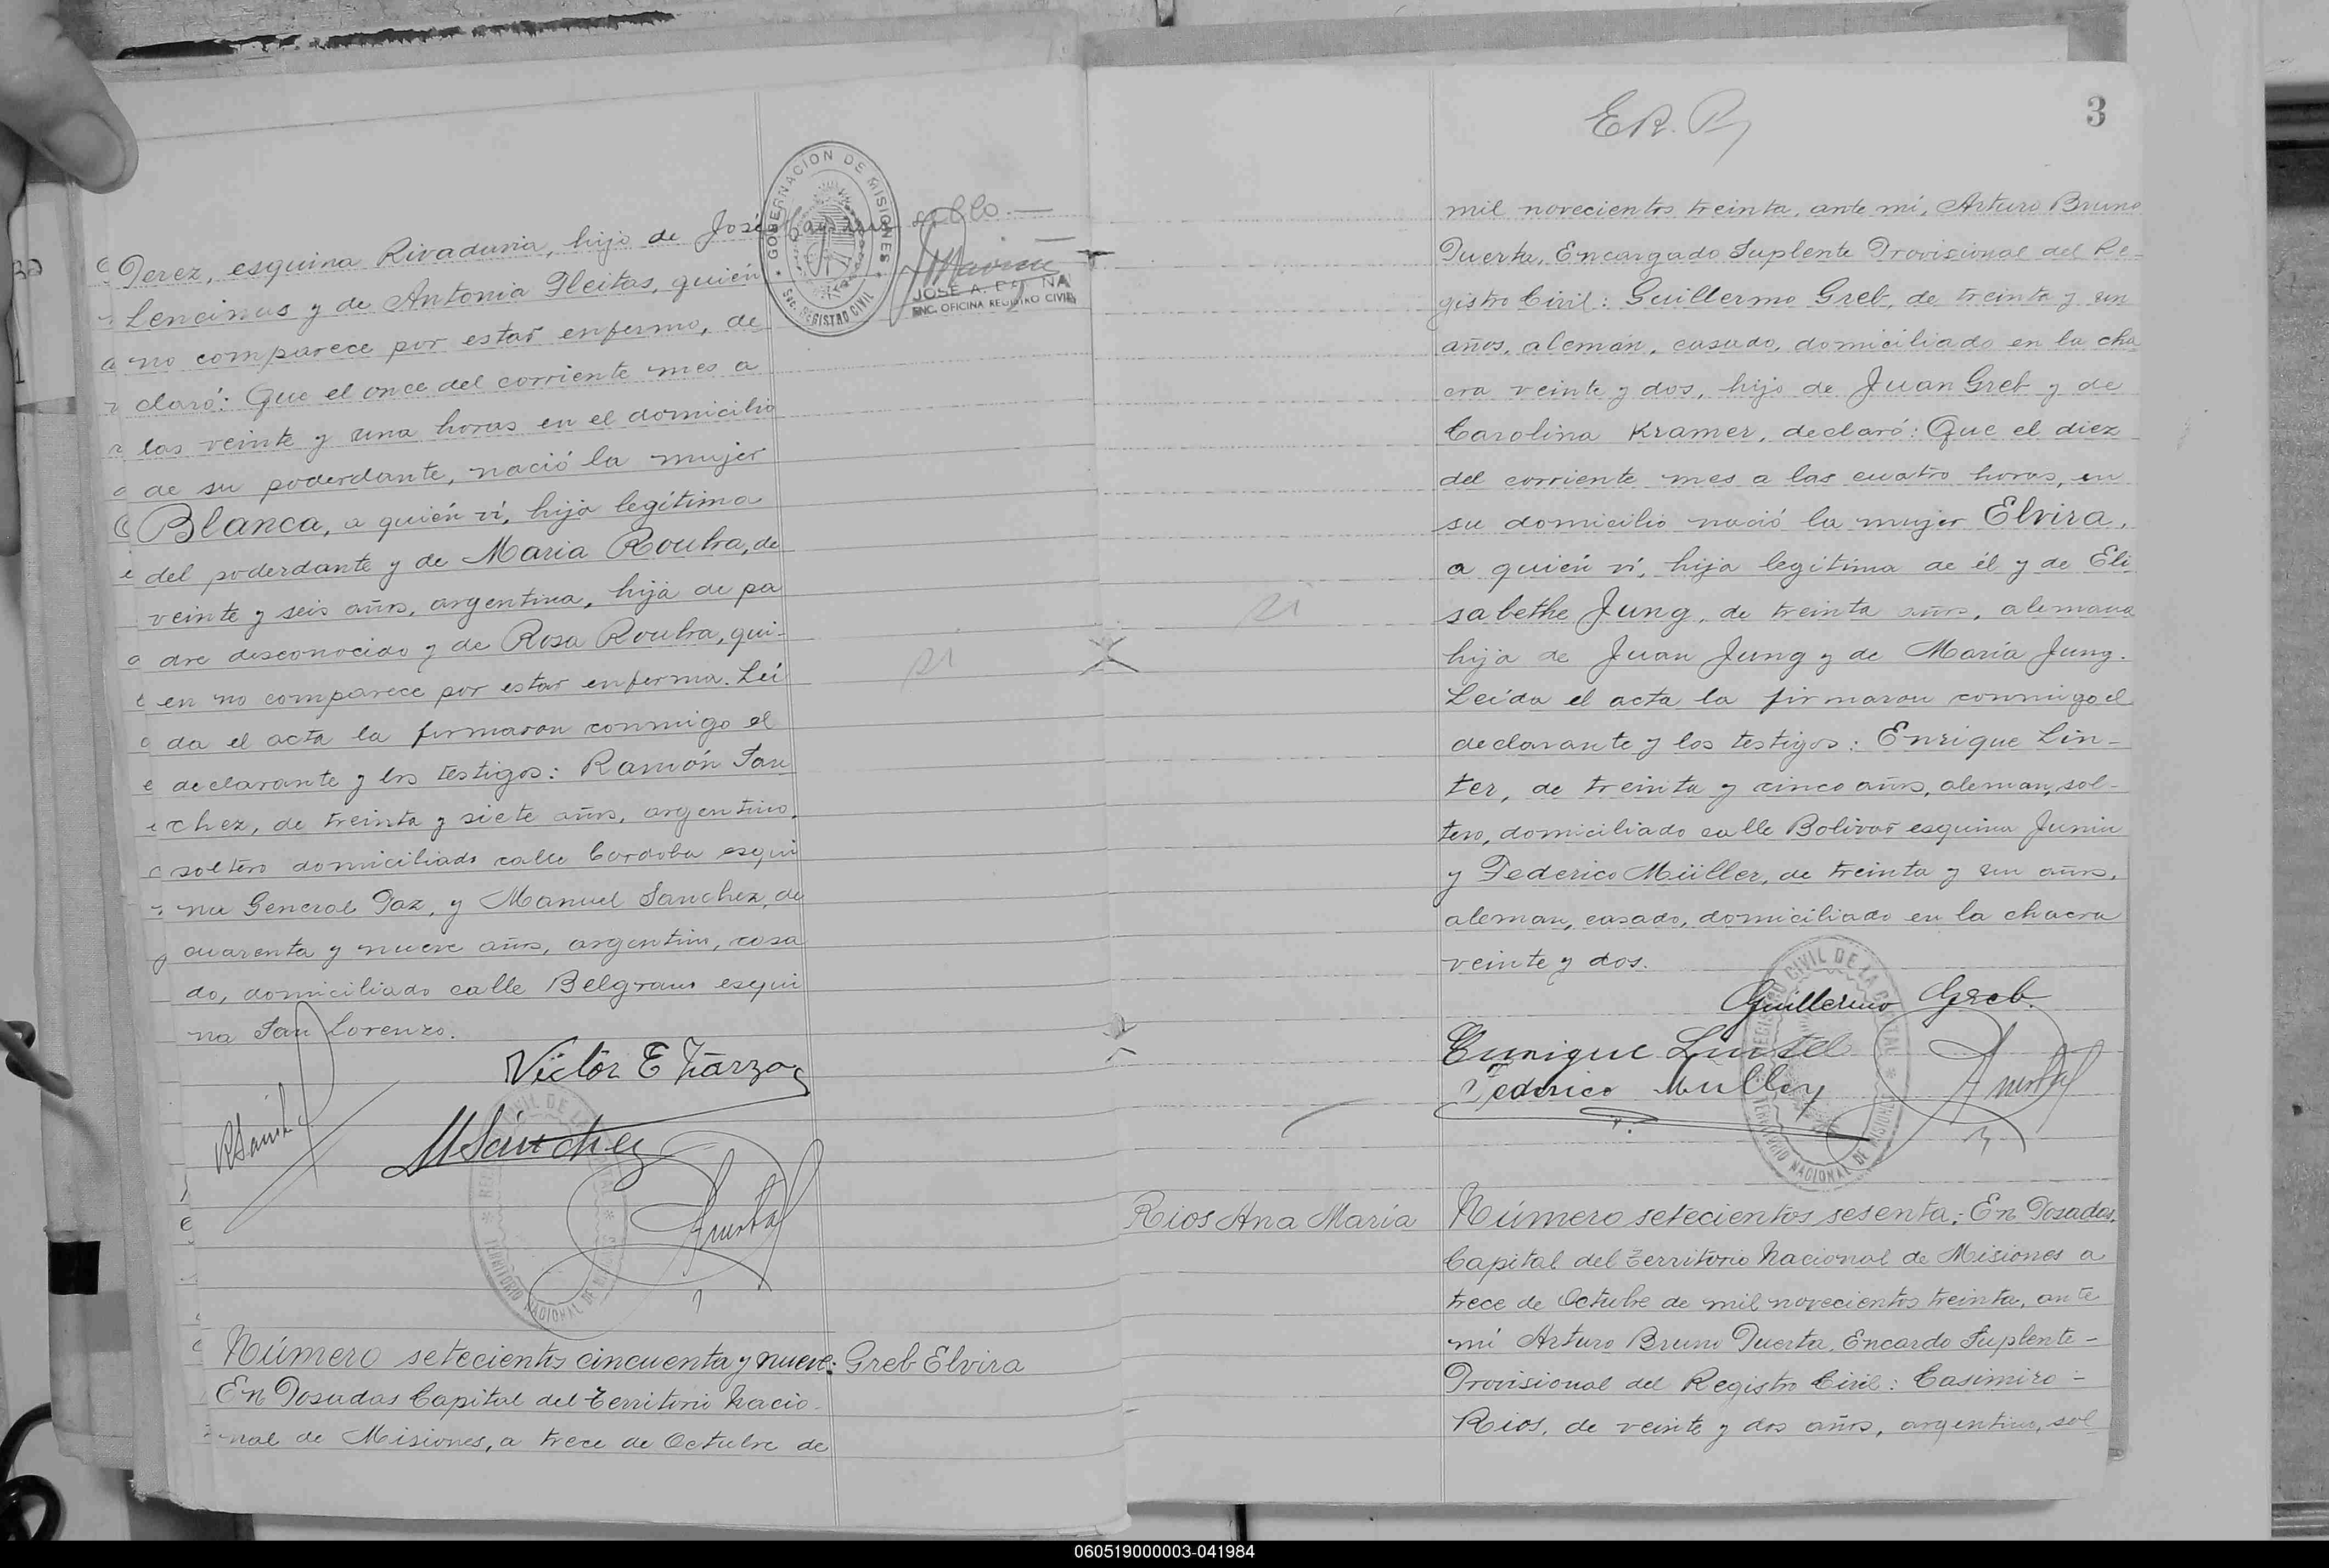 Perez, esquina Rivadavia, hijo de José
Lencinas y de Antonia Fleitas, quién
no comparece por estar enfermo, de
claró: Que el once del corriente mes a
las veinte y una horas en el domicilio
de su poderdante, nació la mujer
Blanca, a quién ví, hija legítima
del poderdante y de Maria Rouha, de
veinte y seis años, argentina, hija de pa
dre desconocido y de Rosa Rouha, qui-
en no comparece por estar enferma. Leí
da el acta la firmaron conmigo el
declarante y los testigos: Ramón San
chez, de treinta y siete años, argentino,
soltero domiciliado calle Cordoba esqui
na General Paz, y Manuel Sanchez, de
cuarenta y nueve años, argentino, casa
do, domiciliado calle Belgrano esqui
na San Lorenzo.
Victor E
MSánchez
GOBERNACION DE MISIONES
REGISTRO CIVIL
JOSE A.
ENC. OFICINA REGISTRO CIVIL
Número setecientos cincuenta y nueve: Greb Elvira
En Posadas Capital del Territorio Nacio-
nal de Misiones, a trece de Octubre de
3
mil novecientos treinta, ante mí, Arturo Bruno
Puerta, Encargado Suplente Provisional del Re-
gistro Civil: Guillermo Greb, de treinta y un
años, alemán, casado, domiciliado en la cha
cra veinte y dos, hijo de Juan Greb y de
Carolina Kramer, declaró: Que el diez
del corriente mes a las cuatro horas, en
su domicilio nació la mujer Elvira,
a quién ví, hija legítima de él y de Eli
sabethe Jung, de treinta años, alemana
hija de Juan Jung y de María Jung.
Leída el acta la firmaron conmigo el
declarante y los testigos: Enrique Lin-
ter, de treinta y cinco años, aleman, sol-
tero, domiciliado calle Bolivar esquina Junin
y Federico Müller, de treinta y un años,
aleman, casado, domiciliado en la chacra
veinte y dos.
Guillermo Greb.
Enrique
Federico
REGISTRO CIVIL DE LA CAPITAL
TERRITORIO NACIONAL DE MISIONES
Rios Ana María
Número setecientos sesenta: En Posadas,
Capital del Territorio Nacional de Misiones a
trece de Octubre de mil novecientos treinta, ante
mí Arturo Bruno Puerta, Encardo Suplente-
Provisional del Registro Civil: Casimiro-
Rios, de veinte y dos años, argentino, sol
060519000003-041984